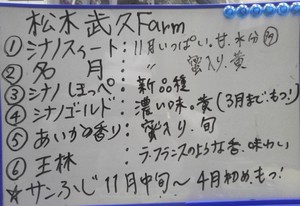 松木武久Farm
①シナノスイート:11月いっぱい。甘、水分多
②名月:〃 蜜入り、黄
③シナノほっぺ:新品種
④シナノゴールド:濃い味。黄(3月まで。もつ!)
⑤あいかの香り:蜜入り、旬
⑥王林:ラ・フランスのような香、味わい
☆サンふじ11月中旬〜4月初め、もつ!